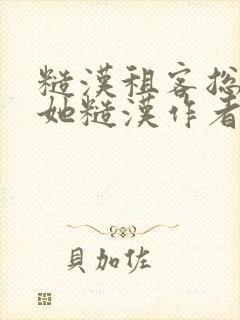 糙漢租客總
她糙漢作者
貝加佐